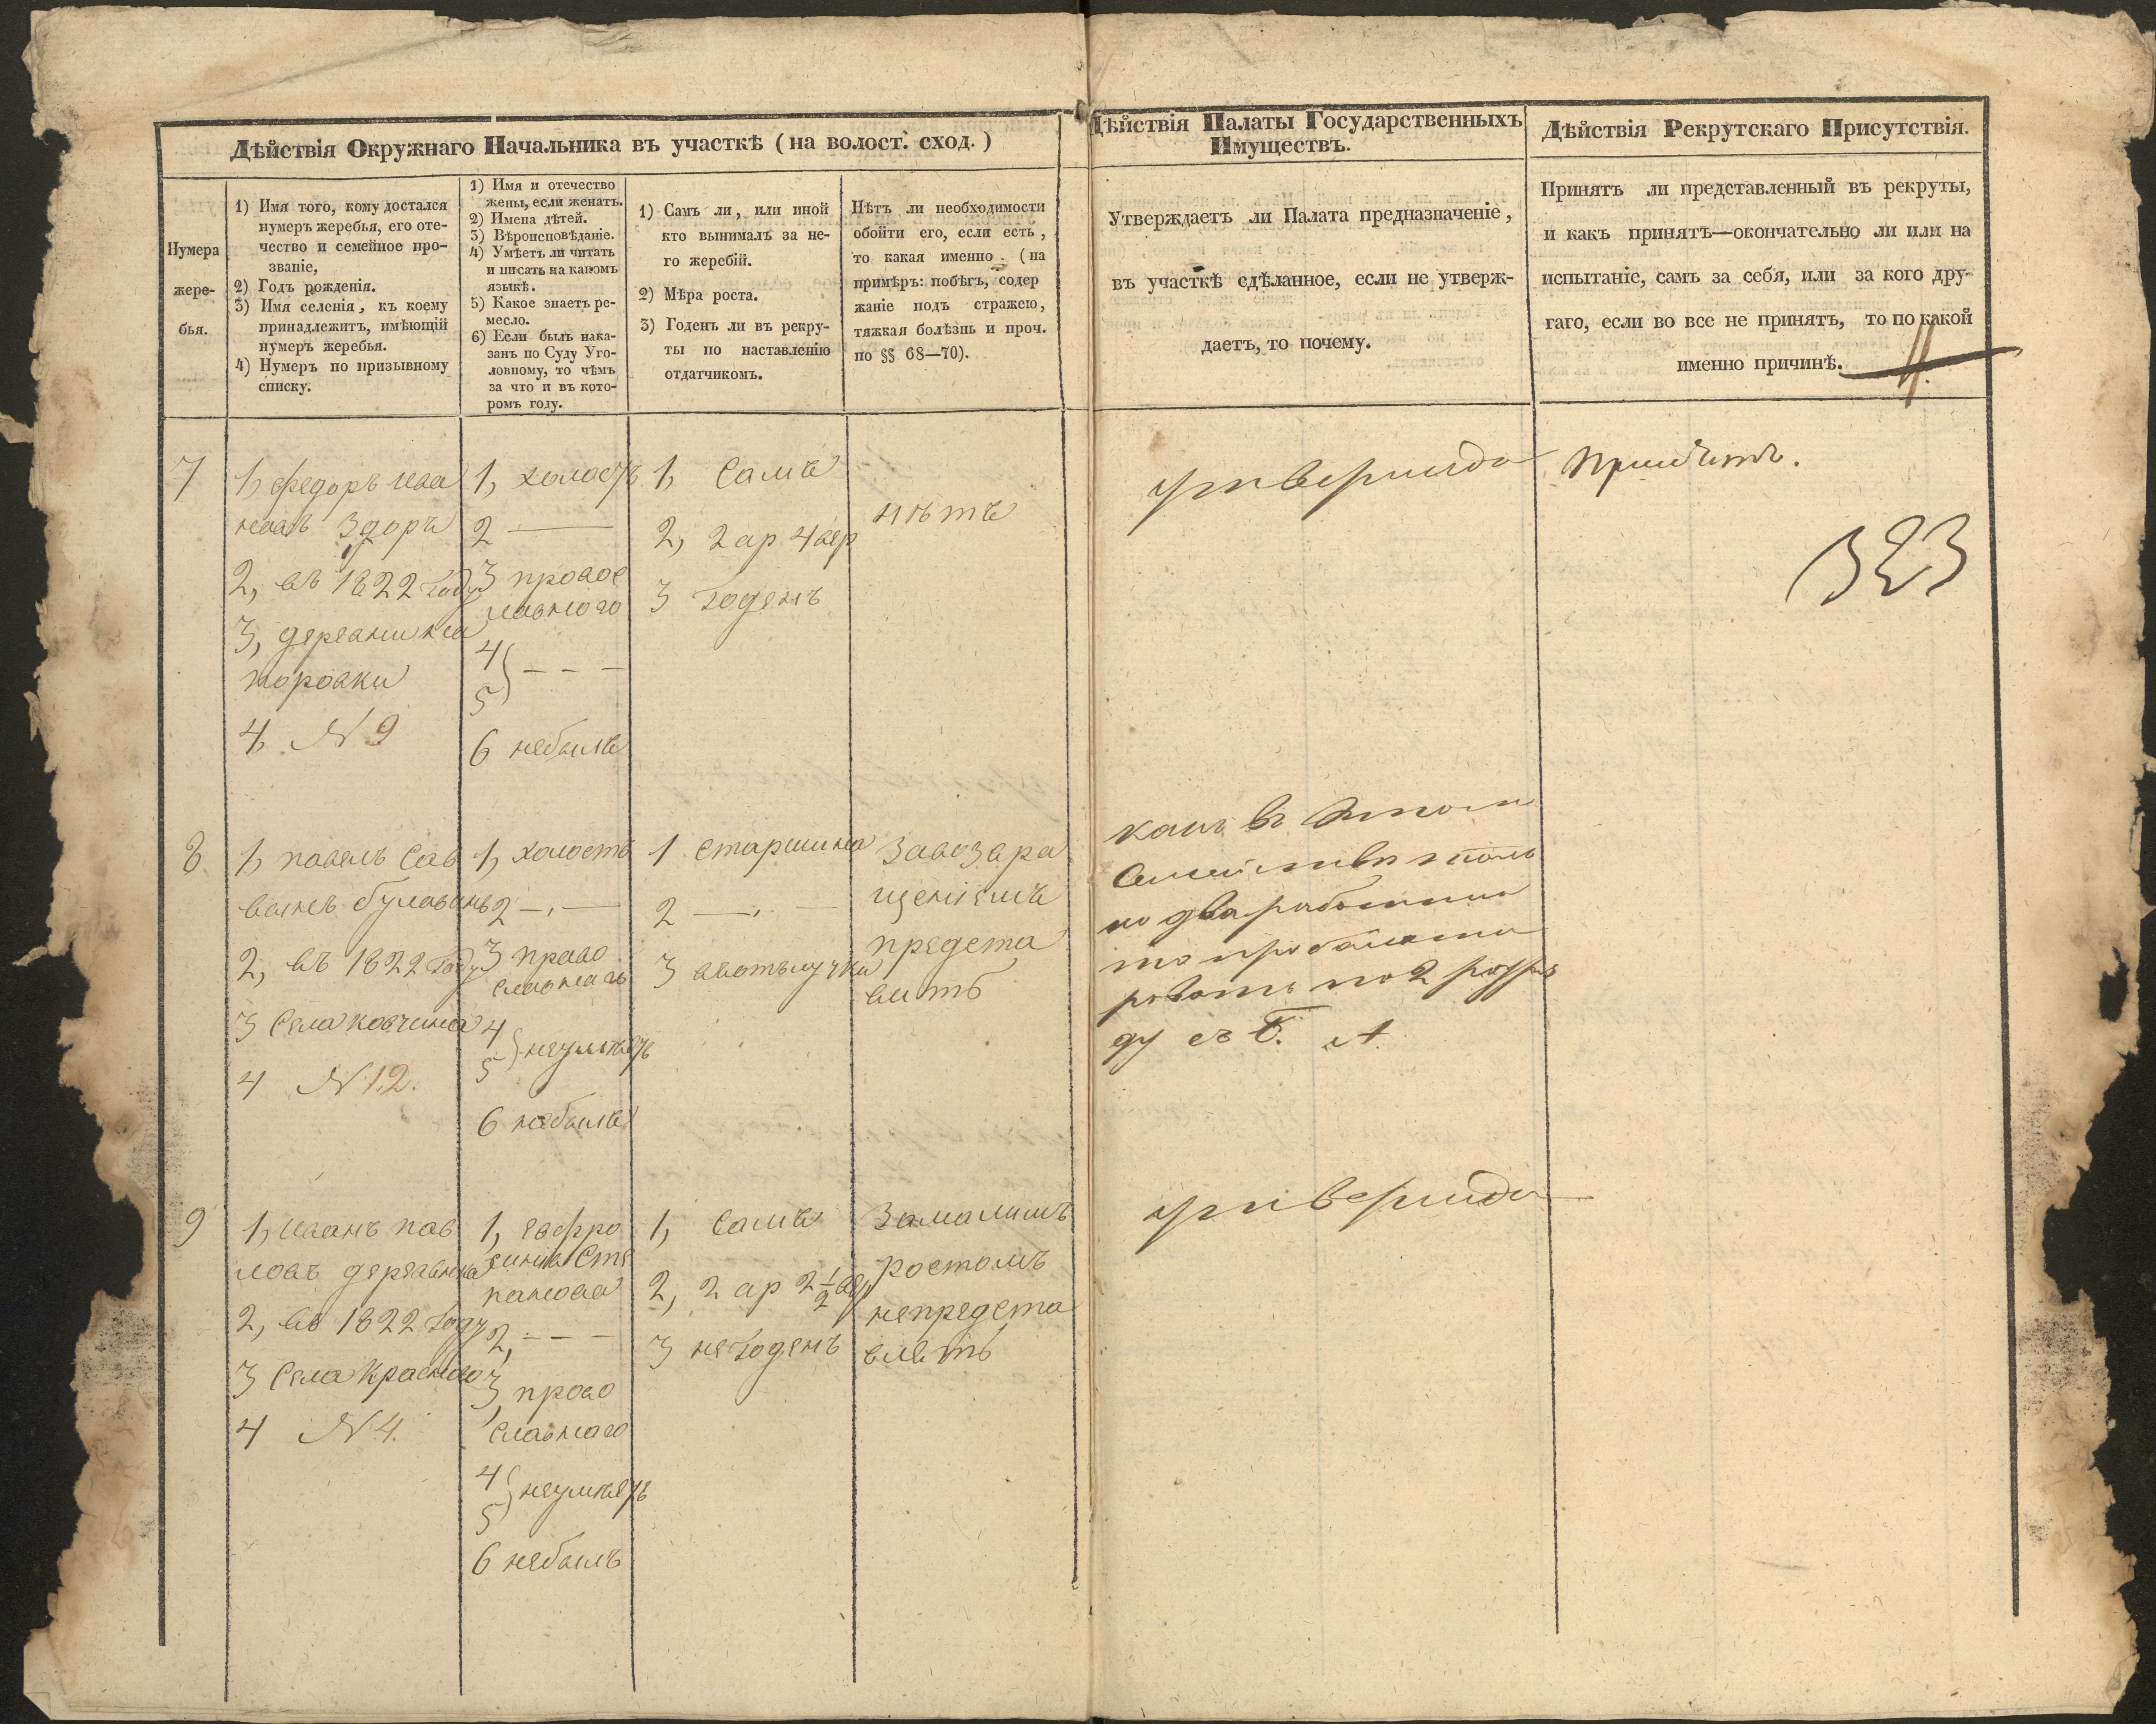 Дѣйствія Окружнаго Начальника въ участкѣ (на волост. сход.)
Нумера
жере-
бья.
1) Имя того, кому достался
нумеръ жеребья, его оте-
чество и семейное про-
званіе,
2) Годъ рожденія.
3) Имя селенія, къ коему
принадлежитъ, имѣющій
нумеръ жеребья.
4) Нумеръ по призывному
списку.
1) Имя и отечество
жены, если женатъ.
2) Имена дѣтей.
3) Вѣроисповѣданіе.
4) Умѣетъ ли читать
и писать на какомъ
языкѣ.
5) Какое знаетъ ре-
месло.
6) Если былъ нака-
занъ по Суду Уго-
ловному, то чѣмъ
за что и въ кото-
ромъ году.
1) Самъ ли, или иной
кто вынималъ за не-
го жеребій.
2) Мѣра роста.
3) Годенъ ли въ рекру-
ты по наставленію
отдатчикомъ.
Нѣтъ ли необходимости
обойти его, если есть,
то какая именно (на
примѣръ: побѣгъ, содер
жаніе подъ стражею,
тяжкая болѣзнь и проч.
по §§ 68—70).
Дѣйствія Палаты Государственныхъ
Имуществъ.
Утверждаетъ ли Палата предназначеніе,
въ участкѣ сдѣланное, если не утверж-
даетъ, то почему.
Дѣйствія Рекрутскаго Присутствія.
Принятъ ли представленный въ рекруты,
и какъ принятъ—окончательно ли или на
испытаніе, самъ за себя, или за кого дру-
гаго, если во все не принятъ, то по какой
именно причинѣ.
7
1, федоръ ива
новъ Здоръ
2, въ 1822 году
3, деревни
4, N 9
1, холостъ
2 —
3 провос
лавного
4
5 } - - -
6 небылъ
1, Самъ
2, 2 ар 4 вер
3 годенъ
нѣтъ
утвержда
Принятъ.
323
8
1, павелъ Сав
2, въ 1822 году
3 Села
4 N 12.
1, холостъ
2 —,—
3 право
славнаго
4
5 } неумѣетъ
6 небылъ
1 Старшина
2 —,. —
3 вотлучки
Завозвра
щеніемъ
предста
вить
какъ въ этомъ
Семействѣ толь
ко два работника
то
ду съ
9
1, Иванъ пав
ловъ
2, въ 1822 году
3 Села Красного
4 N 4.
1, Евфро
синія Сте
панова
2, - - -
3, право
славнаго
4
5 } неумѣетъ
6 небылъ
1, Самъ
2, 2 ар 2 1/2 вер
3 негоденъ
Замалымъ
ростомъ
непредста
влять
утвержда